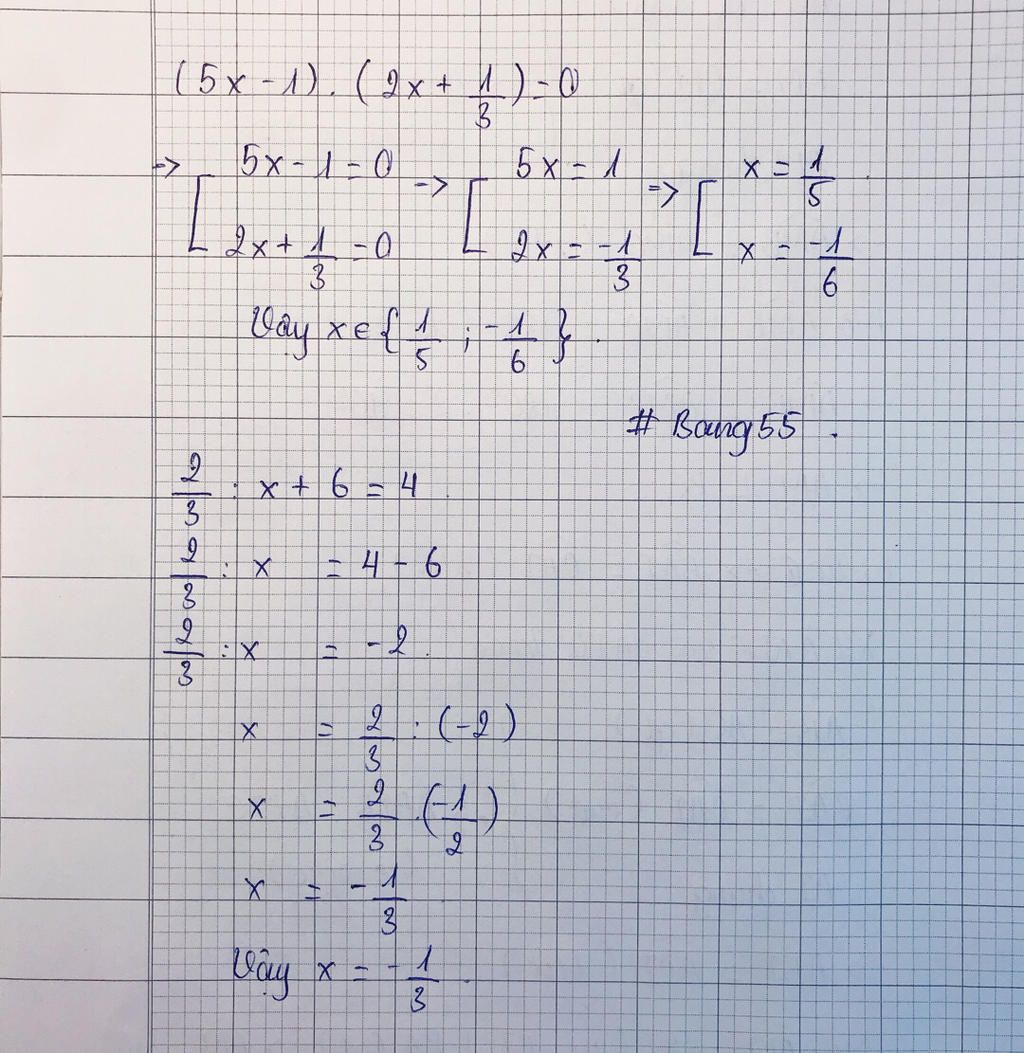 (5x - 1) . (2x + 1/3) = 0
=> [ 5x - 1 = 0 => [ 5x = 1 => [ x = 1/5 .
2x + 1/3 = 0 2x = -1/3 x = -1/6
Vậy x ∈ { 1/5 ; -1/6 } .
# Bang55 .
2/3 : x + 6 = 4 .
2/3 : x = 4 - 6
2/3 : x = -2 .
x = 2/3 : (-2)
x = 2/3 . (-1/2)
x = - 1/3
Vậy x = - 1/3 .